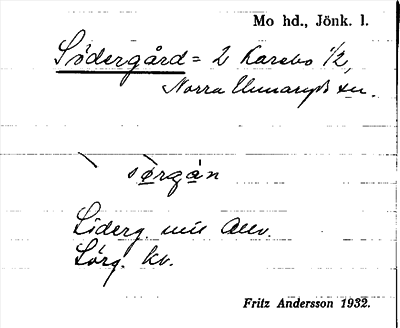 Mo hd., Jönk. l.
Södergård = 2 Karebo 1/2,
Norra Unnaryds sn.
sørgån
Söderg.
Sörg. kv.
Fritz Andersson 1932.